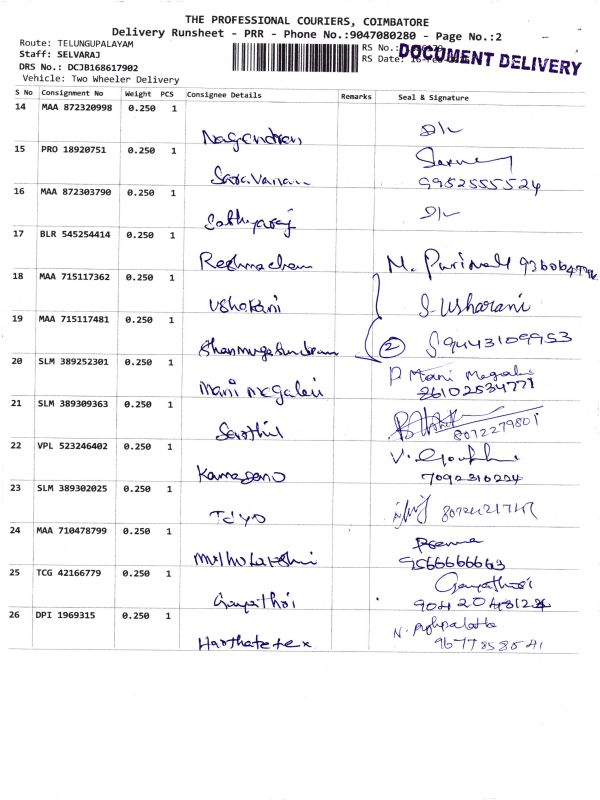 THE PROFESSIONAL COURIERS, COIMBATORE
Delivery Runsheet - PRR - Phone No.:9047080280 - Page No.:2
Route: TELUNGUPALAYAM
RS No.:
Staff: SELVARAJ
RS Date:
DOCUMENT DELIVERY
DRS No.: DCJB168617902
Vehicle: Two Wheeler Delivery
S No Consignment No Weight PCS Consignee Details Remarks Seal & Signature
14 MAA 872320998 0.250 1
Nagendran
15 PRO 18920751 0.250 1
Saravanan 9952555524
16 MAA 872303790 0.250 1
Sathyaraj
17 BLR 545254414 0.250 1
18 MAA 715117362 0.250 1
Usharani S. Usharani
19 MAA 715117481 0.250 1
Shanmugasundram 2 9443109953
20 SLM 389252301 0.250 1
P Mani Megalai
Mani megalai
21 SLM 389309363 0.250 1
Senthil 8072279801
22 VPL 523246402 0.250 1
7092310224
23 SLM 389302025 0.250 1
24 MAA 710478799 0.250 1
Muthulakshmi 9566666663
25 TCG 42166779 0.250 1
Gayathri
Gayathri
26 DPI 1969315 0.250 1